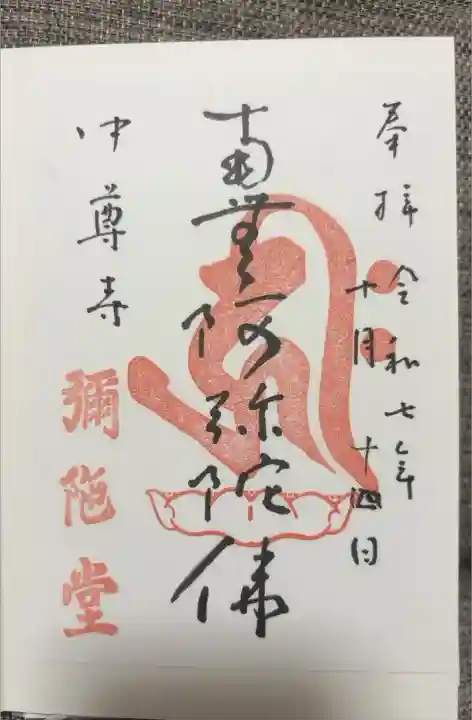 奉拝 令和七年
十月十四日
南無阿弥陀佛
中尊寺
彌陀堂